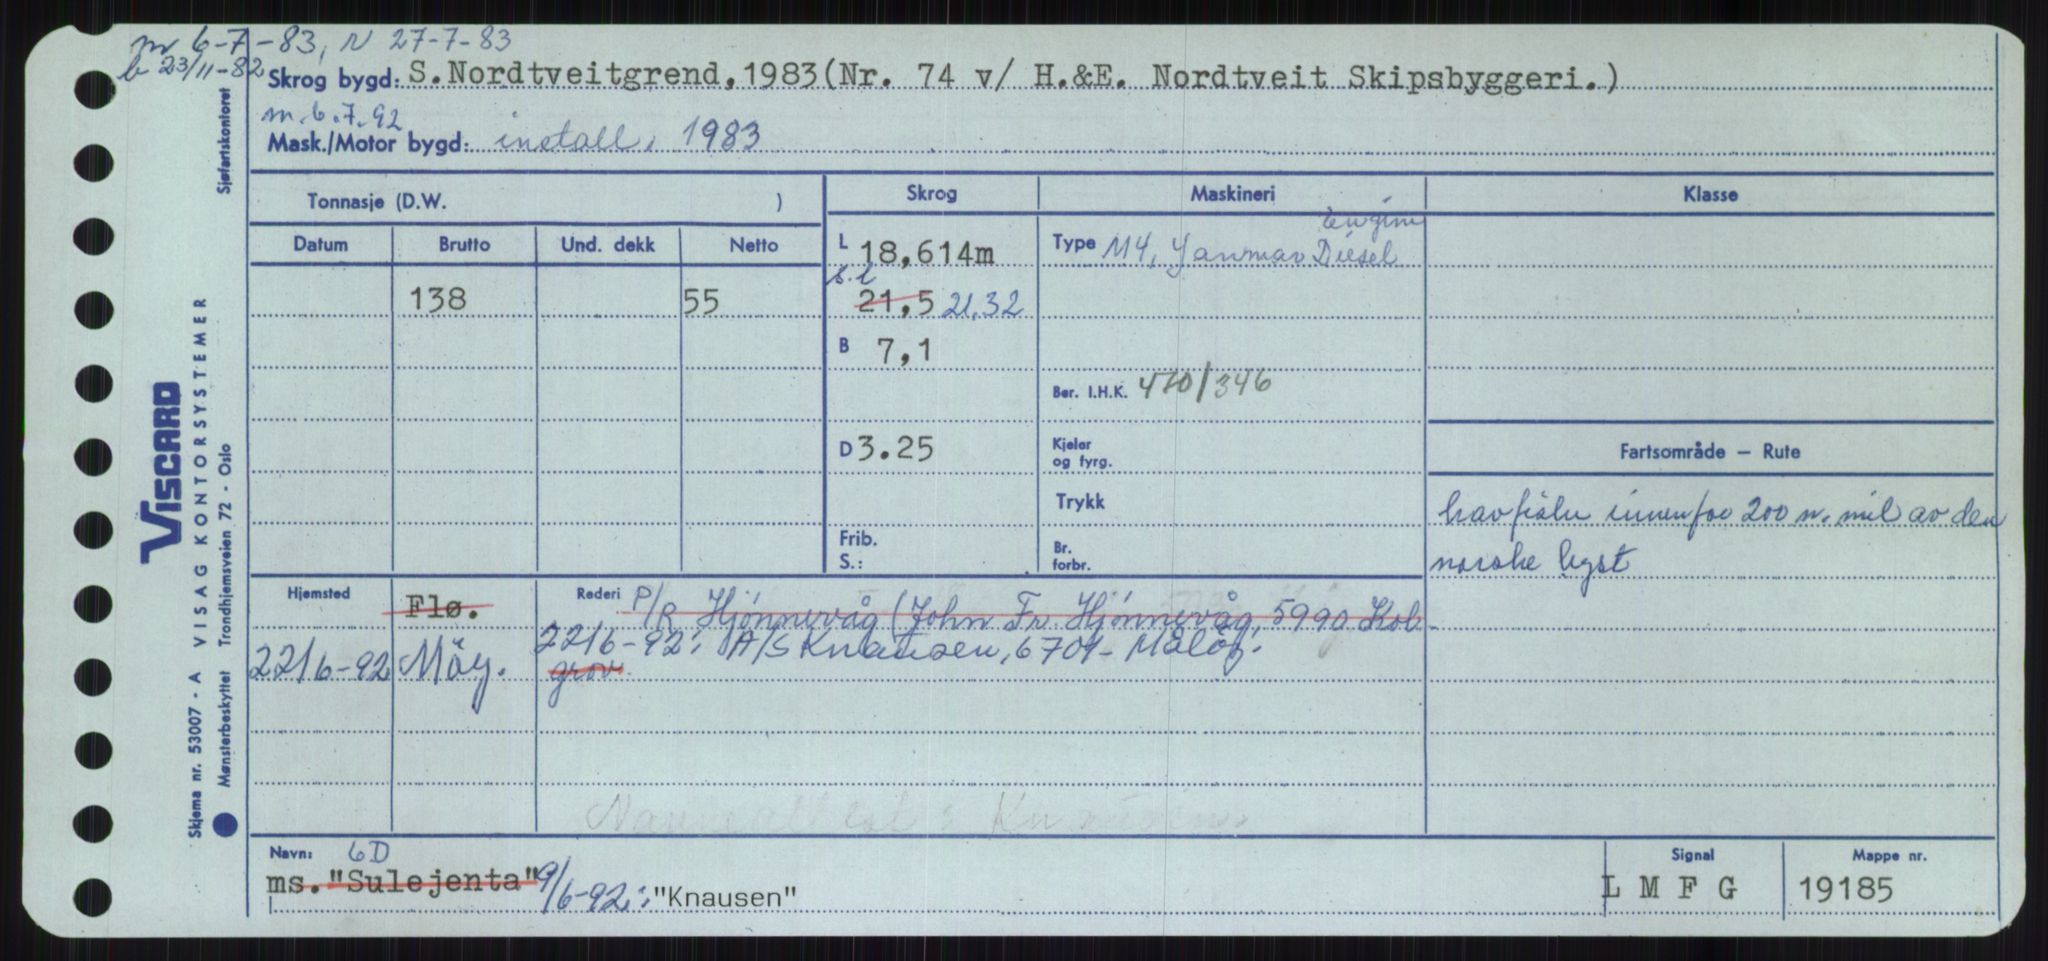 m 6-7-83, N 27-7-83
b 23/11-82
Skrog bygd: S.Nordtveitgrend,1983(Nr. 74 v/ H.&E. Nordtveit Skipsbyggeri.)
m. 6.7.92
Mask./Motor bygd: install. 1983
Tonnasje (D.W. )
Skrog
Maskineri
Klasse
Datum
Brutto
Und. dekk
Netto
L 18,614m
Type M4, Yanmar Diesel Engine
138
55
s.l
21,5 21,32
B 7,1
Ber. I.H.K. 470/346
D 3.25
Kjeler
og fyrg.
Trykk
Frib.
S.:
Br.
forbr.
Fartsområde – Rute
havfiske innenfor 200 n. mil av den
norske kyst
Hjemsted
Flø.
Rederi P/R Hjønnevåg (John Fr. Hjønnevåg, 5990 Kol-
grov.
22/6-92 Måøy.
22/6-92: A/S Knausen, 6701- Måløy.
Navn: 6D
ms. "Sulejenta" 9/6-92: "Knausen"
Signal
L M F G
Mappe nr.
19185
Sjøfartskontoret
VISCARD
VISAG KONTORSYSTEMER
Trondhjemsveien 72 - Oslo
Skjema nr. 53007 - A
Mønsterbeskyttet